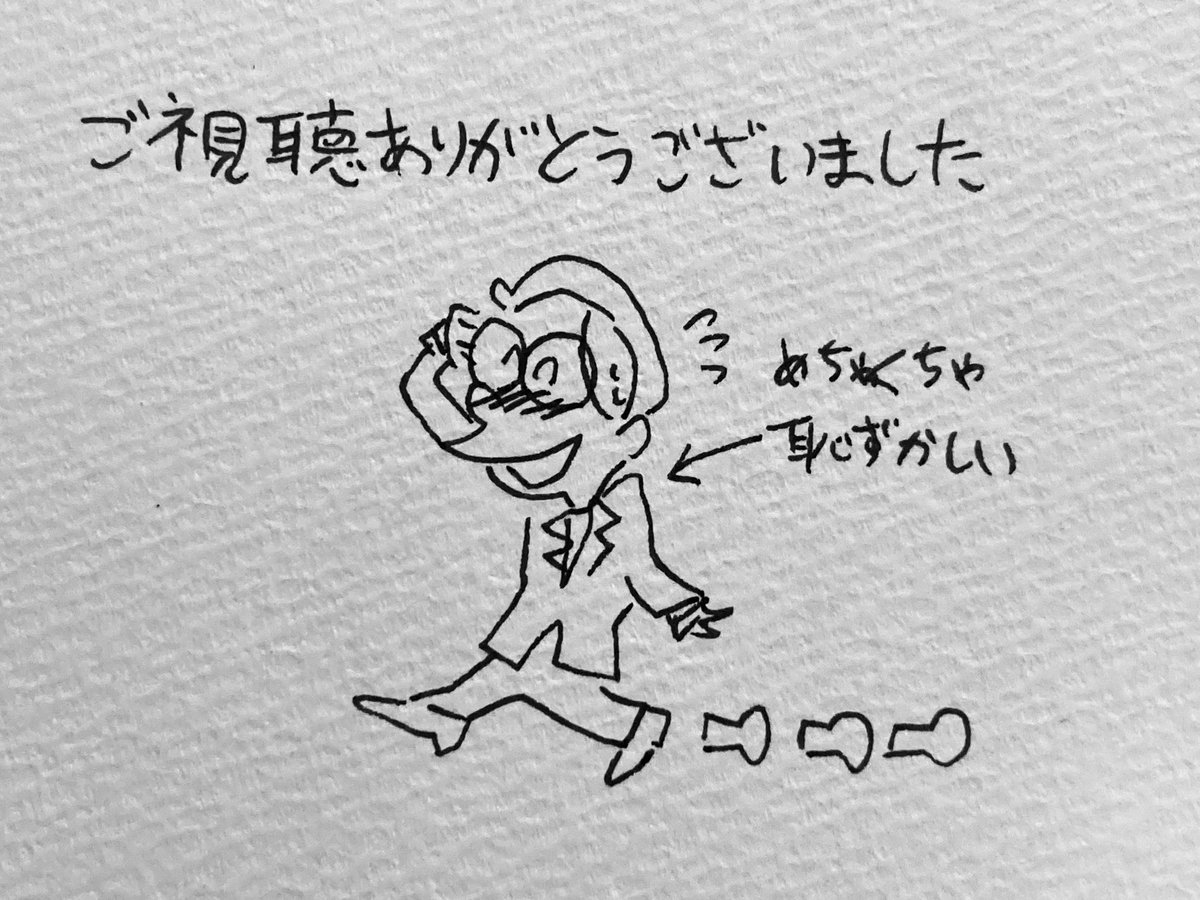 ご視聴ありがとうございました
めちゃくちゃ
恥ずかしい